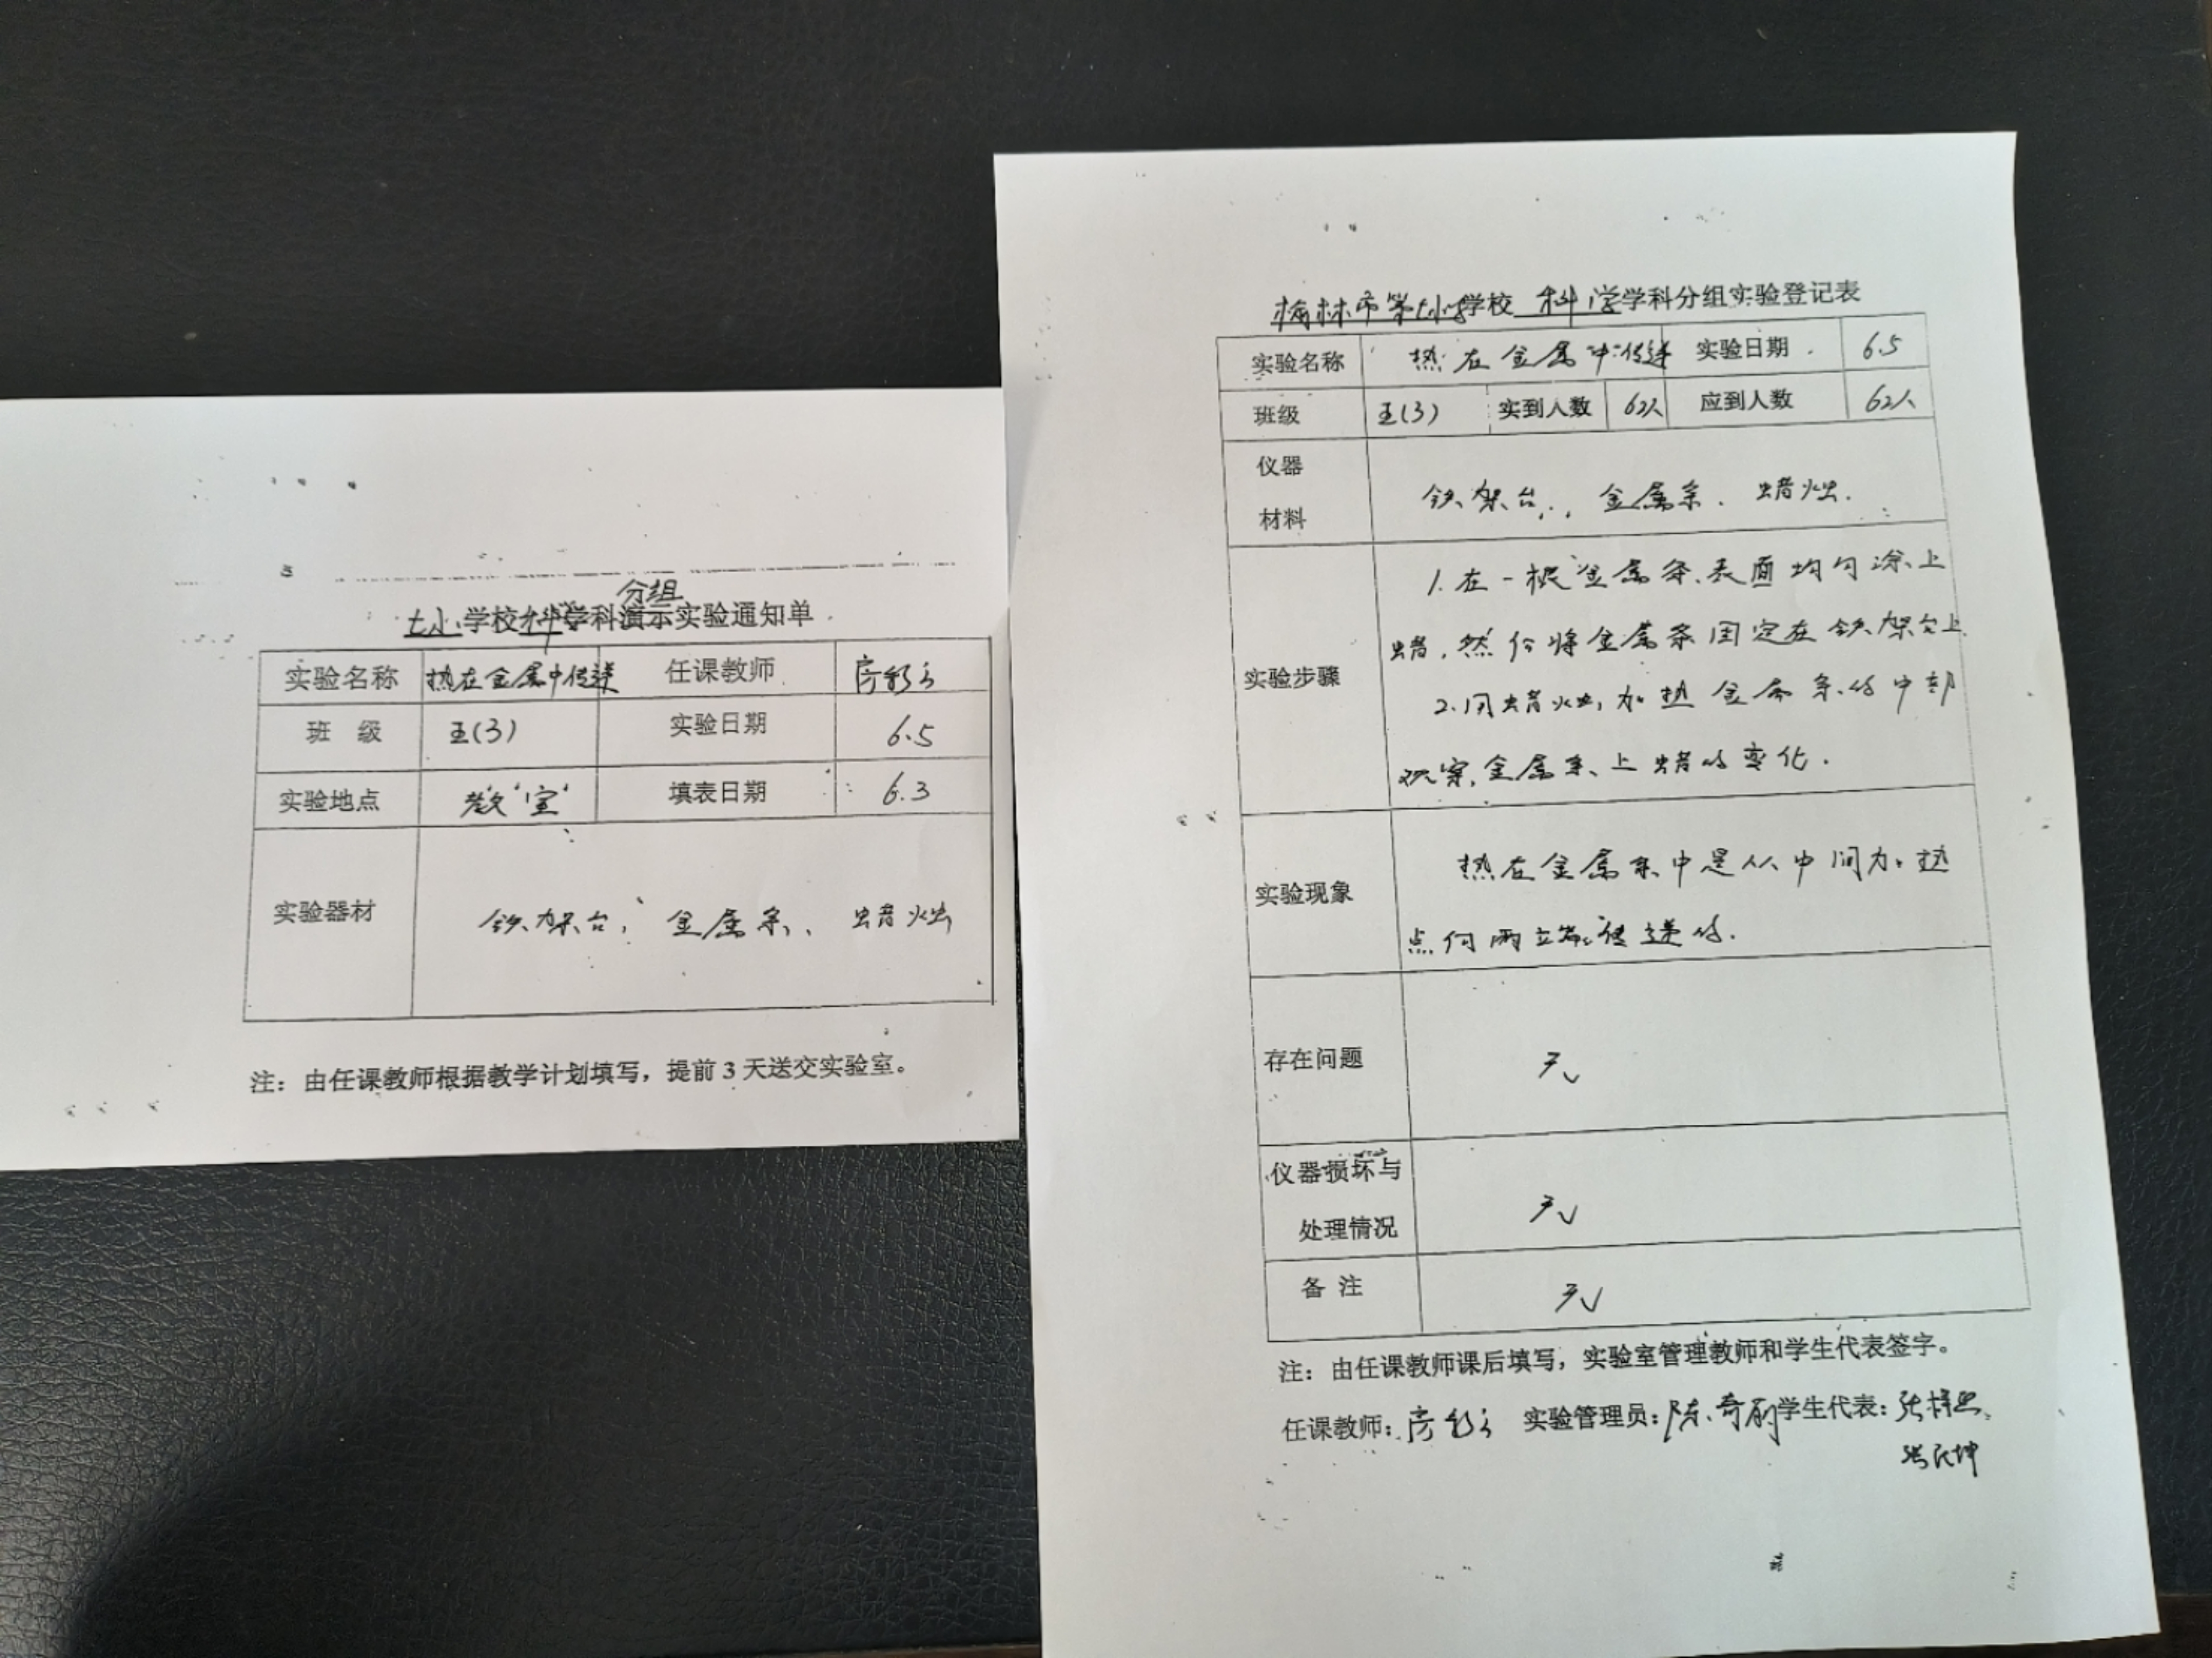 分组
七小学校科学学科演示实验通知单
实验名称 热在金属中传递 任课教师 房
班 级 五(3) 实验日期 6.5
实验地点 教室 填表日期 6.3
实验器材 铁架台、金属条、蜡烛
注：由任课教师根据教学计划填写，提前3天送交实验室。
榆林市第七小学学校 科学学科分组实验登记表
实验名称 热在金属中传递 实验日期 6.5
班级 五(3) 实到人数 62人 应到人数 62人
仪器
材料
铁架台、金属条、蜡烛.
实验步骤
1.在一根金属条表面均匀涂上
蜡，然后将金属条固定在铁架台上
2.用蜡烛加热金属条的中部
观察金属条上蜡的变化.
实验现象
热在金属条中是从中间加热
点向两端传递的.
存在问题 无
仪器损坏与
处理情况
无
备 注 无
注：由任课教师课后填写，实验室管理教师和学生代表签字。
任课教师：房 实验管理员：陈奇丽 学生代表：张